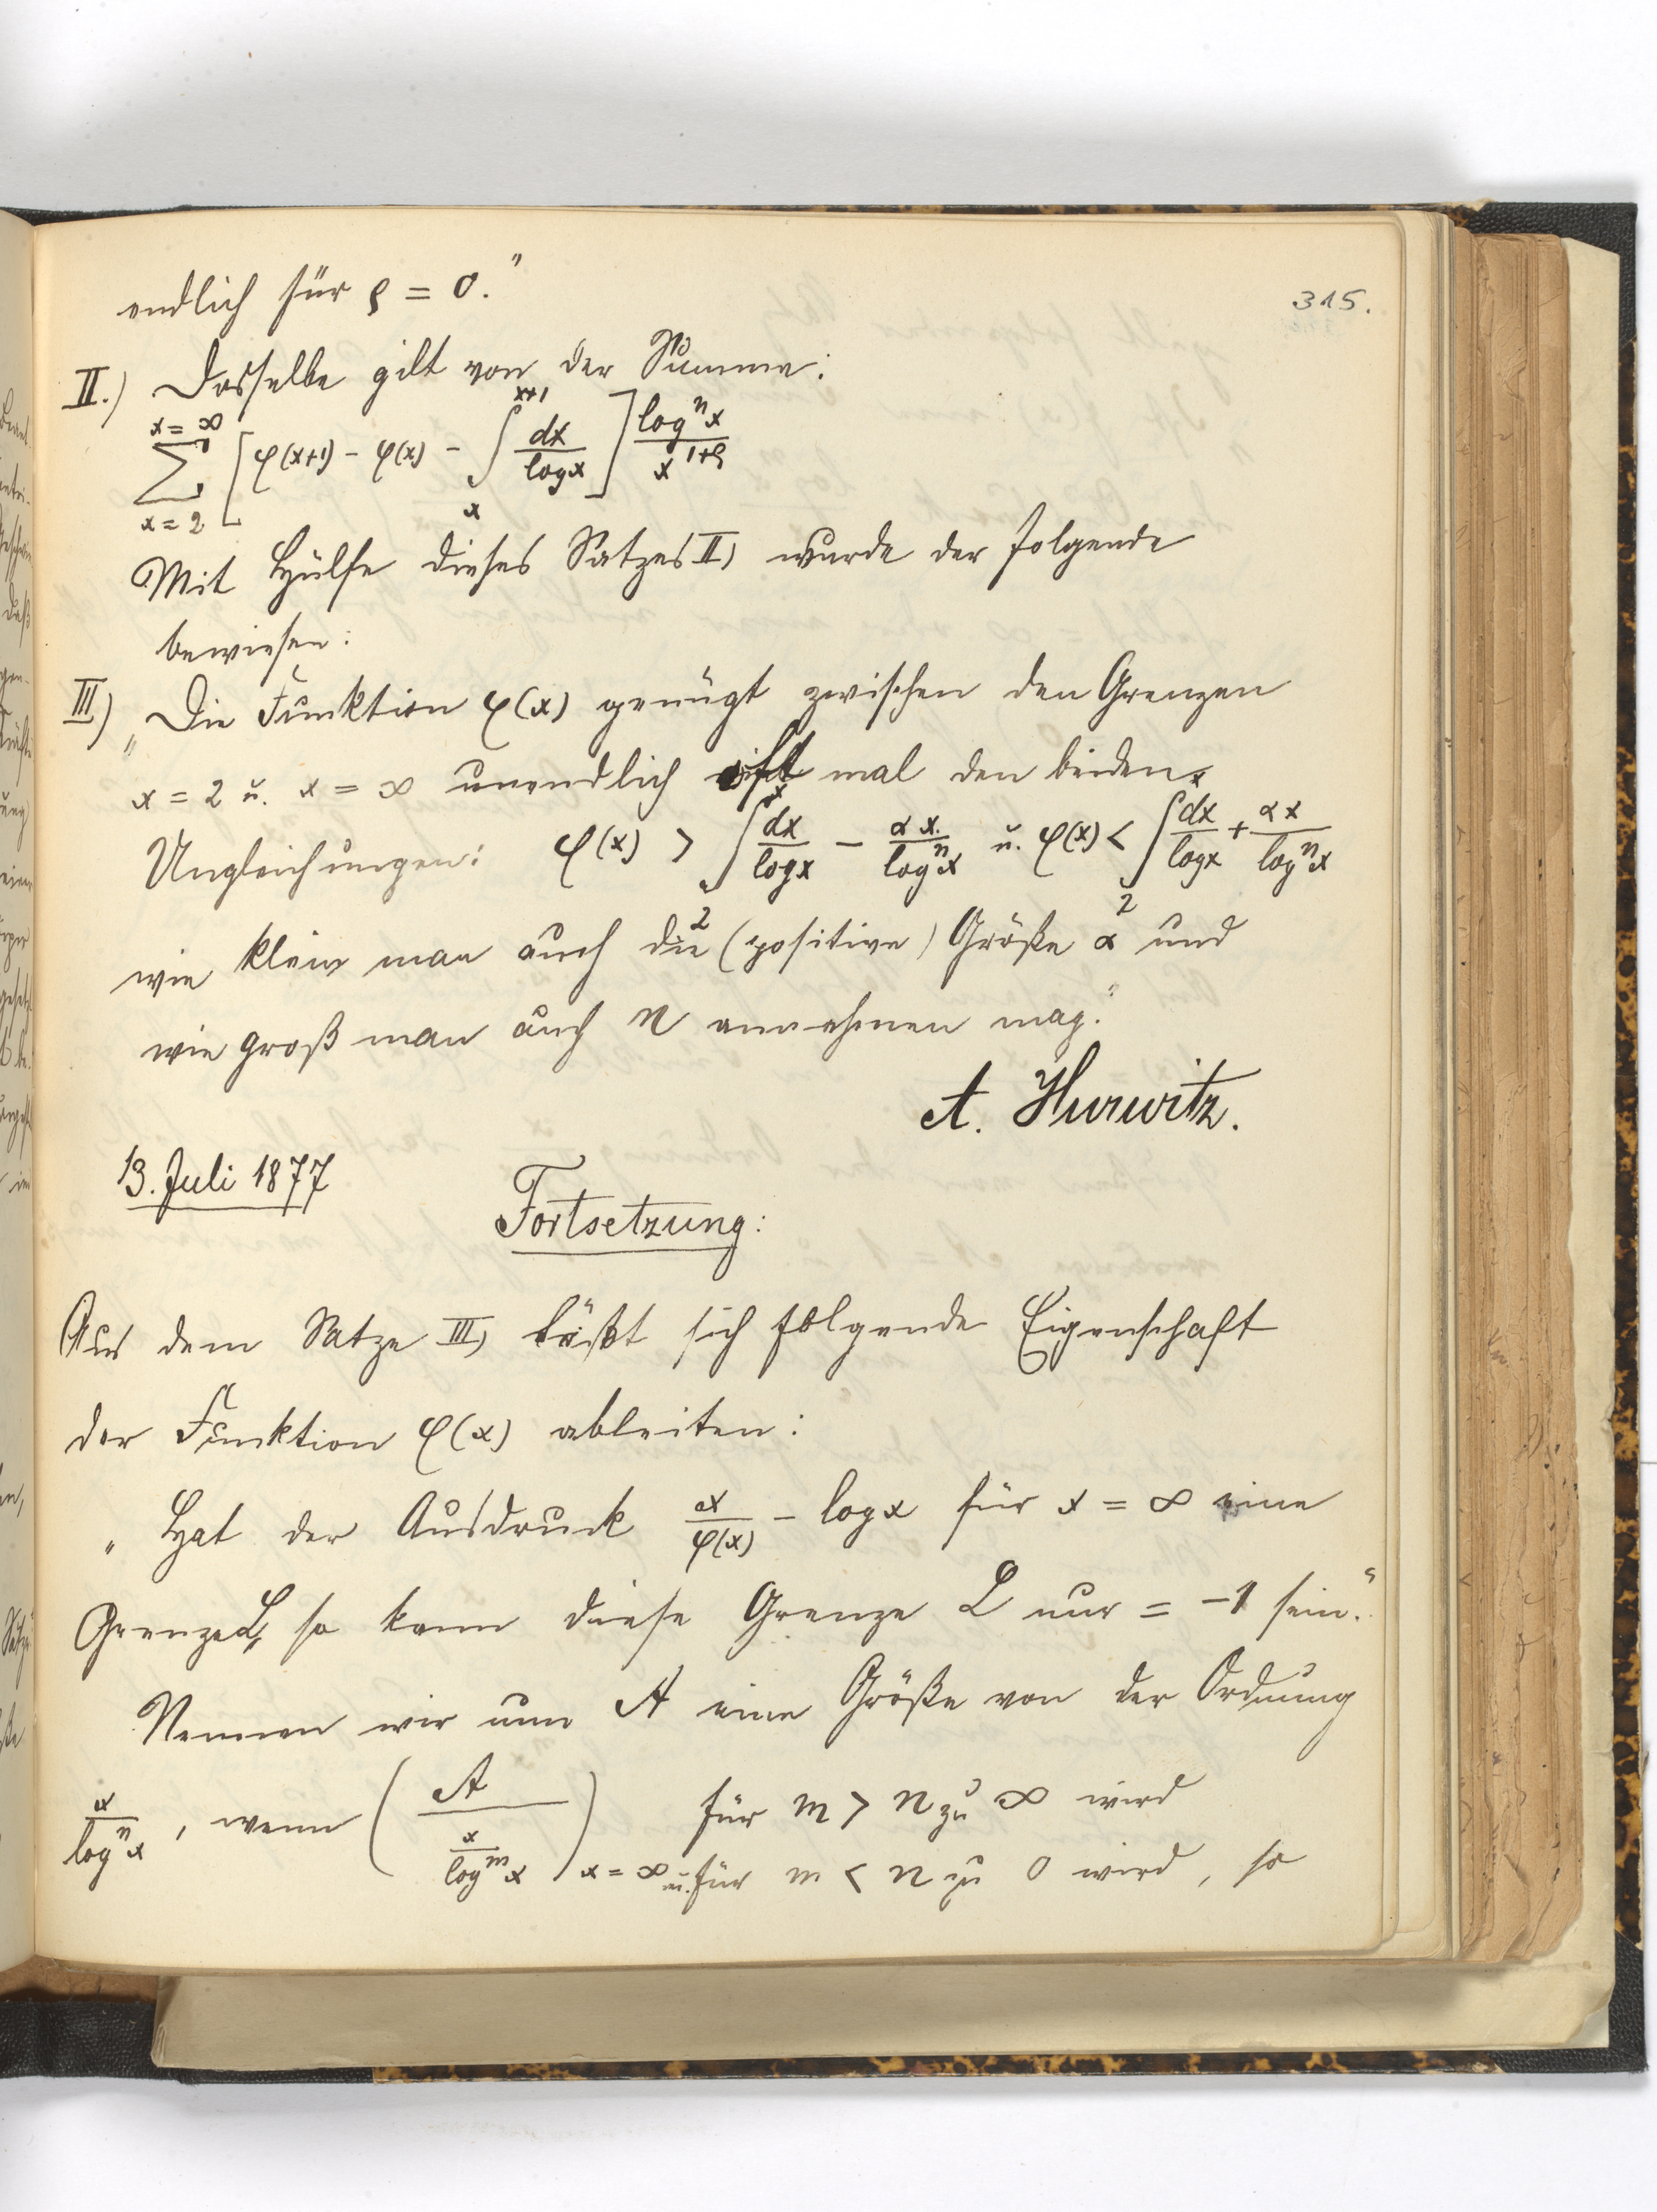 315.
endlich für ρ = 0."
II.) Dasselbe gilt von der Summe:
∑_{x=2}^{x=∞} [φ(x+1) - φ(x) - ∫_x^{x+1} dx/log x] log^n x / x^{1+ρ}
Mit Hülfe dieses Satzes II) wurde der folgende
bewiesen:
III) „Die Funktion φ(x) genügt zwischen den Grenzen
x = 2 u. x = ∞ unendlich oft mal den beiden
Ungleichungen: φ(x) > ∫_2^x dx/log x - αx/log^n x u. φ(x) < ∫_2^x dx/log x + αx/log^n x
wie klein man auch die (positive) Größe α und
wie groß man auch n annehmen mag."
A. Hurwitz.
13. Juli 1877
Fortsetzung:
Aus dem Satze III) läßt sich folgende Eigenschaft
der Funktion φ(x) ableiten:
„Hat der Ausdruck x/φ(x) - log x für x = ∞ eine
Grenze L, so kann diese Grenze L nur = -1 sein."
Nennen wir nun A eine Größe von der Ordnung
x/log^n x, wenn (A / (x/log^m x))_{x=∞} für m > n zu ∞ wird
u. für m < n zu 0 wird, so